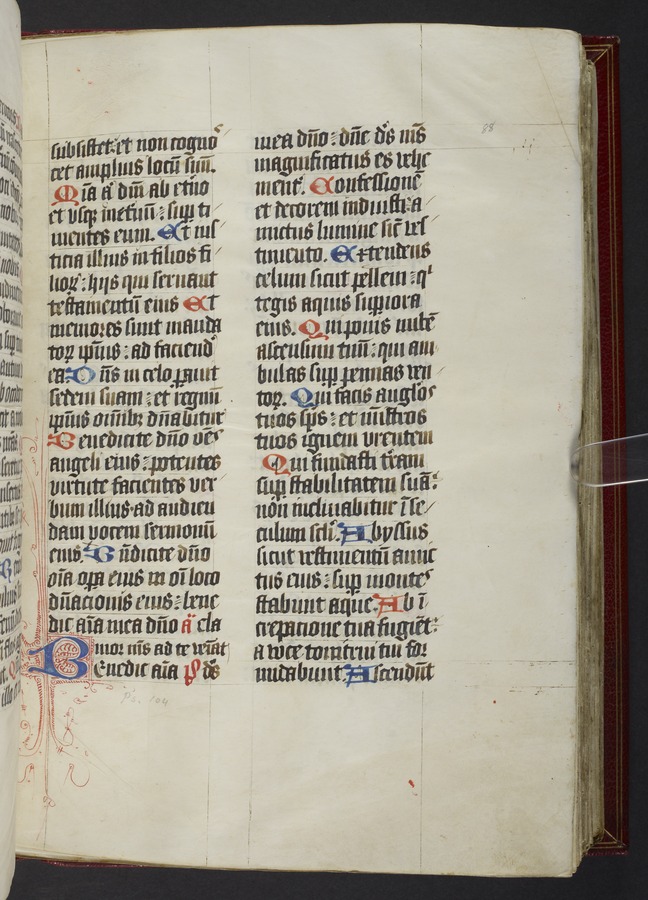 88
subsistet: et non cogno
cet amplius locū suū.
Mia a͛ dñi ab et̄no
et vsqȝ inet̄nū: sup ti
mentes eum. Et ius
ticia illius in filios fi
lioꝝ: hiis qui seruant
testamentū eius Et
memores sunt manda
toꝝ ip̄ius: ad faciend͛
ea: Dñs in celo ꝑauit
sedem suam: et regnū
ip̄ius om̄ibꝫ dn̄abitur
Benedicite dn̄o om̄s
angeli eius: potentes
virtute facientes ver
bum illius: ad audien
dam vocem sermonū
eius. Bn̄dicite dn̄o
oīa oꝑa eius in oī loco
dn̄acionis eius: bene
dic aīa mea dn̄o a͛ cla
mor mīs ad te veniat
Benedic aīa ps̄ dd̄
Ps. 104
mea dn̄o: dn̄e ds̄ mīs
magnificatus es vehe
ment͛. Confessionē
et decorem induisti: a
mictus lumine sic̄ ves
timento. Extendens
celum sicut pellem: q͛
tegis aquis supiora
eius. Qui ponis nubē
ascensum tuū: qui am
bulas sup pennas ven
toꝝ. Qui facis anglos
tuos sp̄s: et mīstros
tuos ignem vrentem
Qui fundasti t̄ram
sup stabilitatem suā:
non inclinabitur ī se
culum scl̄i. Abyssus
sicut vestimentū amic
tus eius: sup montes
stabunt aque. Ab ī
crepatione tua fugiēt:
a voce tonitrui tui for
midabunt: Ascendūt